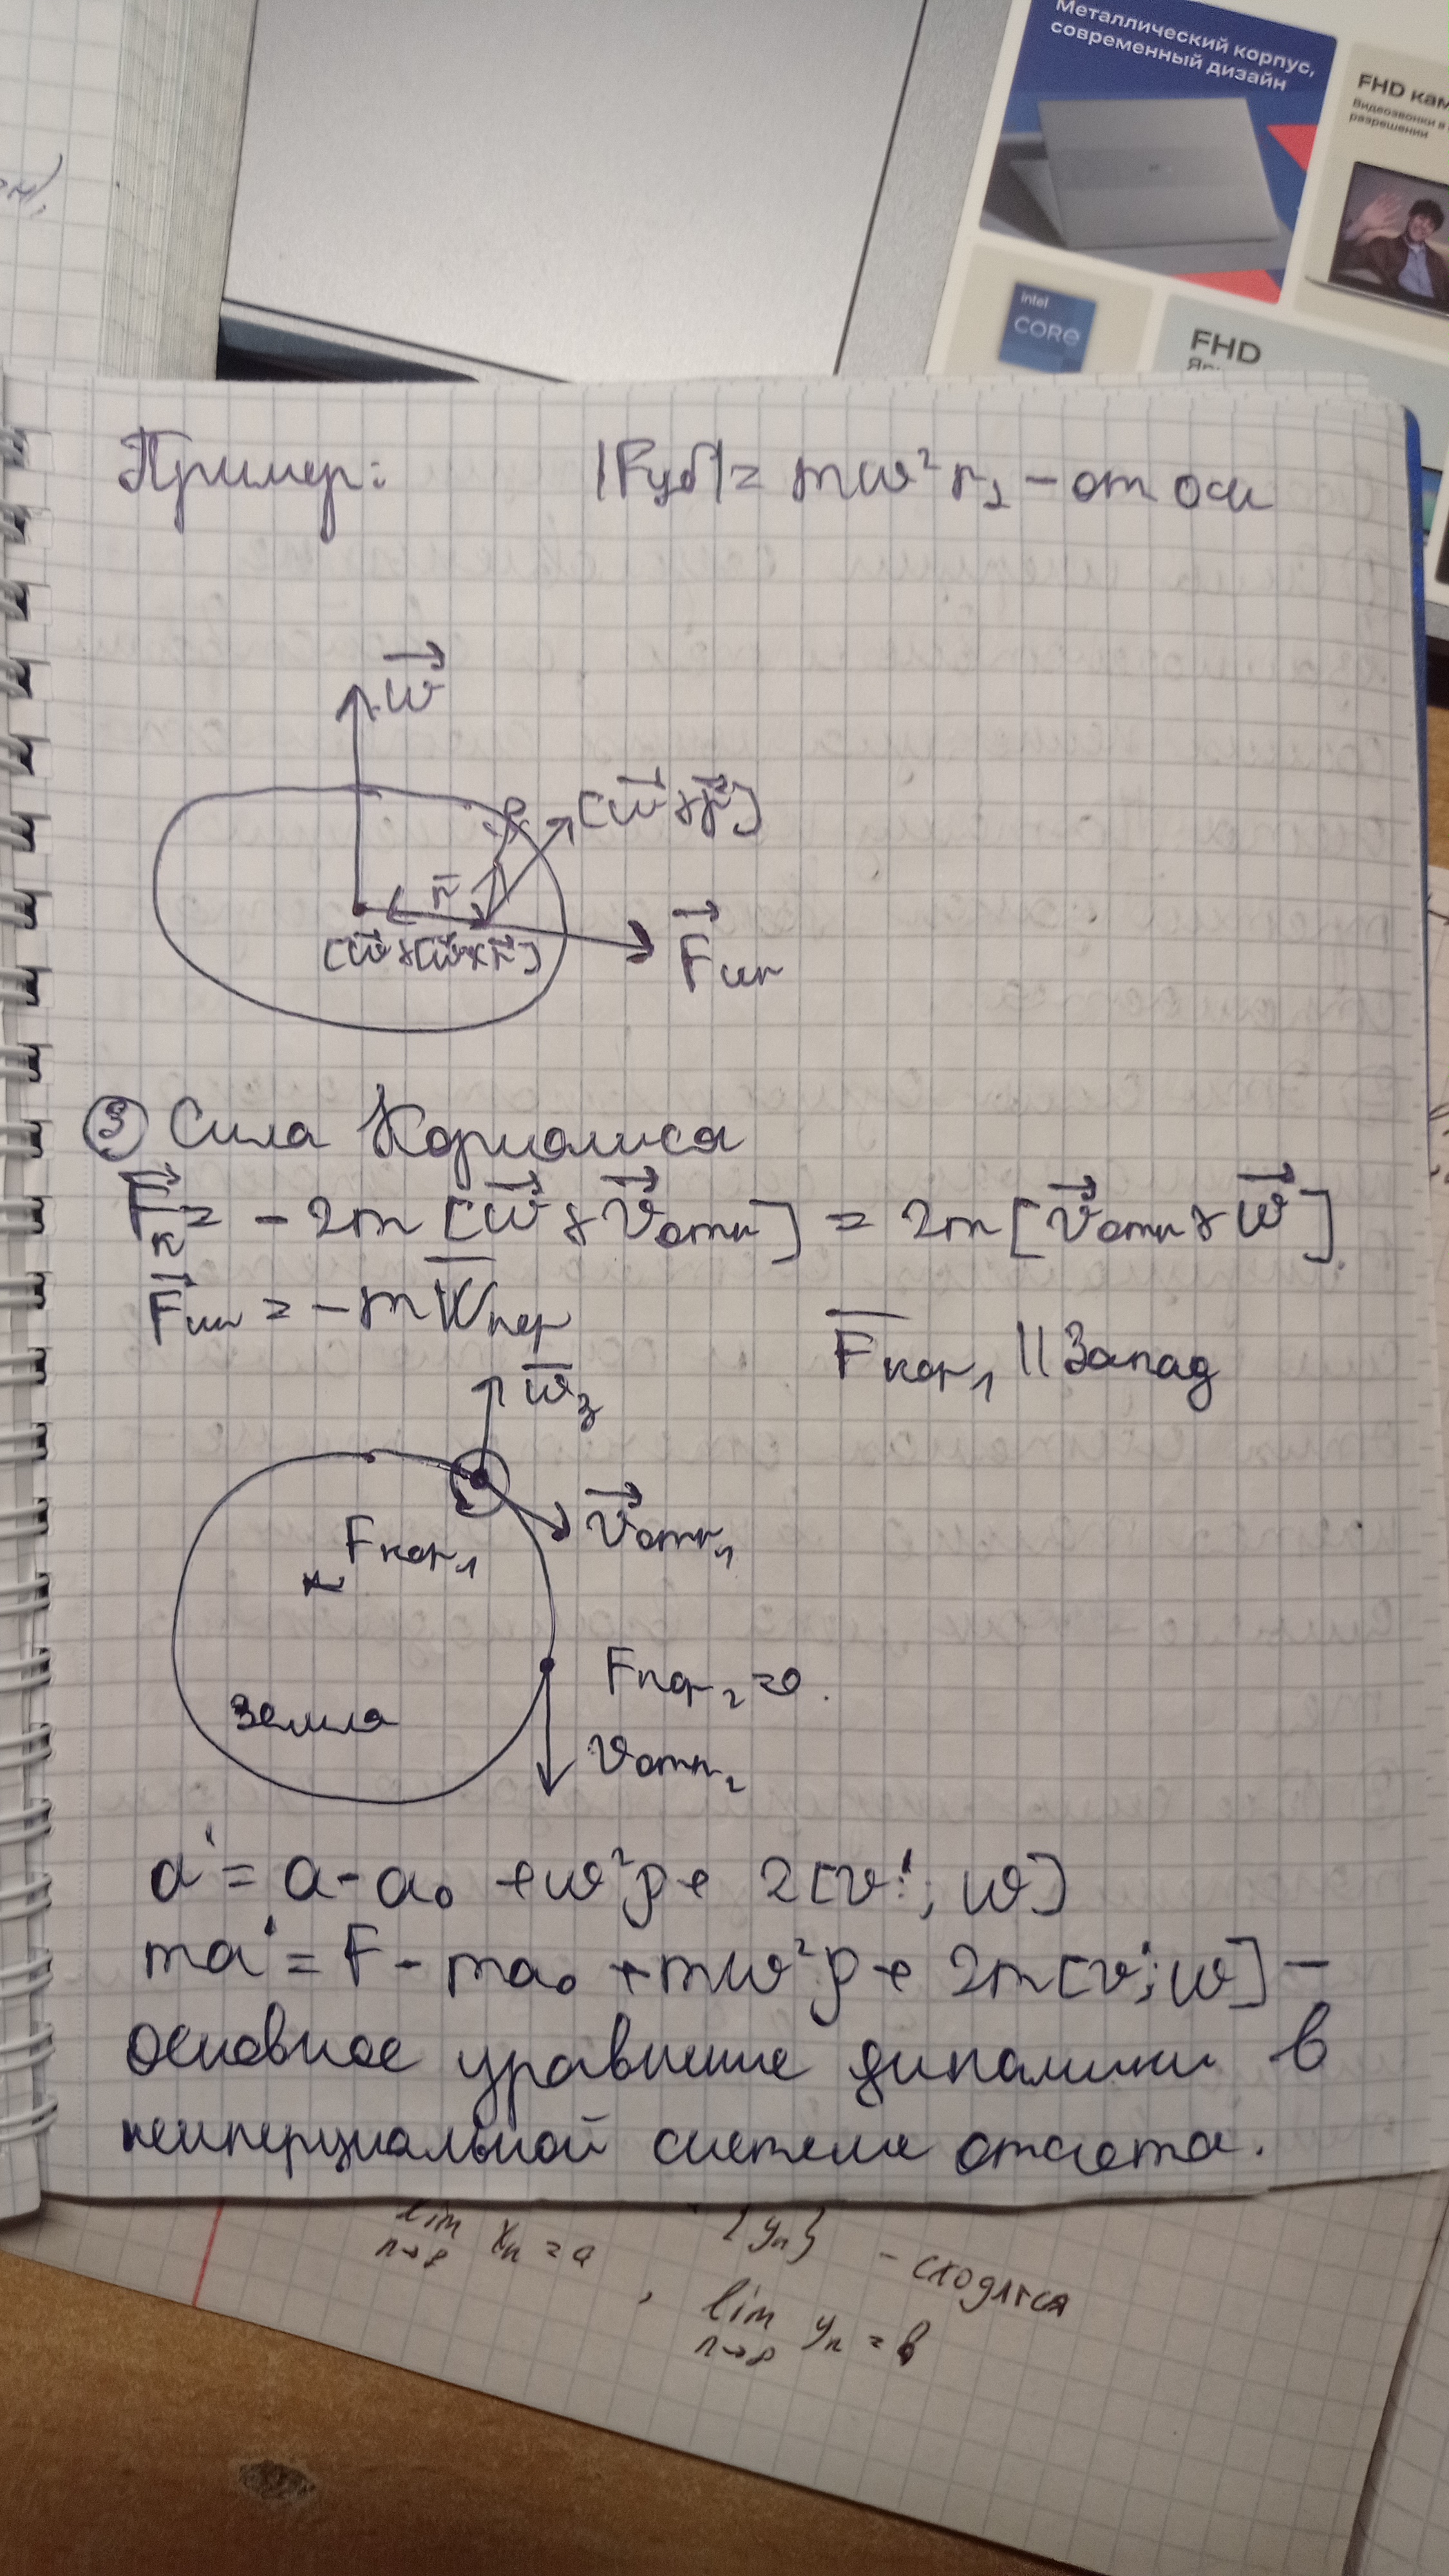 Металлический корпус,
современный дизайн
FHD кам
Видеозвонки в
разрешении
intel
CORE
FHD
Пример: |Fцб| = mw²r⊥ - от оси
w
[w×r]
r
[w×[w×r]]
Fин
③ Сила Кориолиса
Fк = -2m[w×vотн] = 2m[vотн×w]
Fин = -mWпер
Fкор₁ || Запад
wз
vотн₁
Fкор₁
Fкор₂=0.
Земля
vотн₂
a' = a - a₀ + w²ρ + 2[v'; w]
ma' = F - ma₀ + mw²ρ + 2m[v'; w] -
основное уравнение динамики в
неинерциальной системе отсчета.
lim xₙ = a {yₙ} - сходятся
n→∞
, lim yₙ = b
n→∞